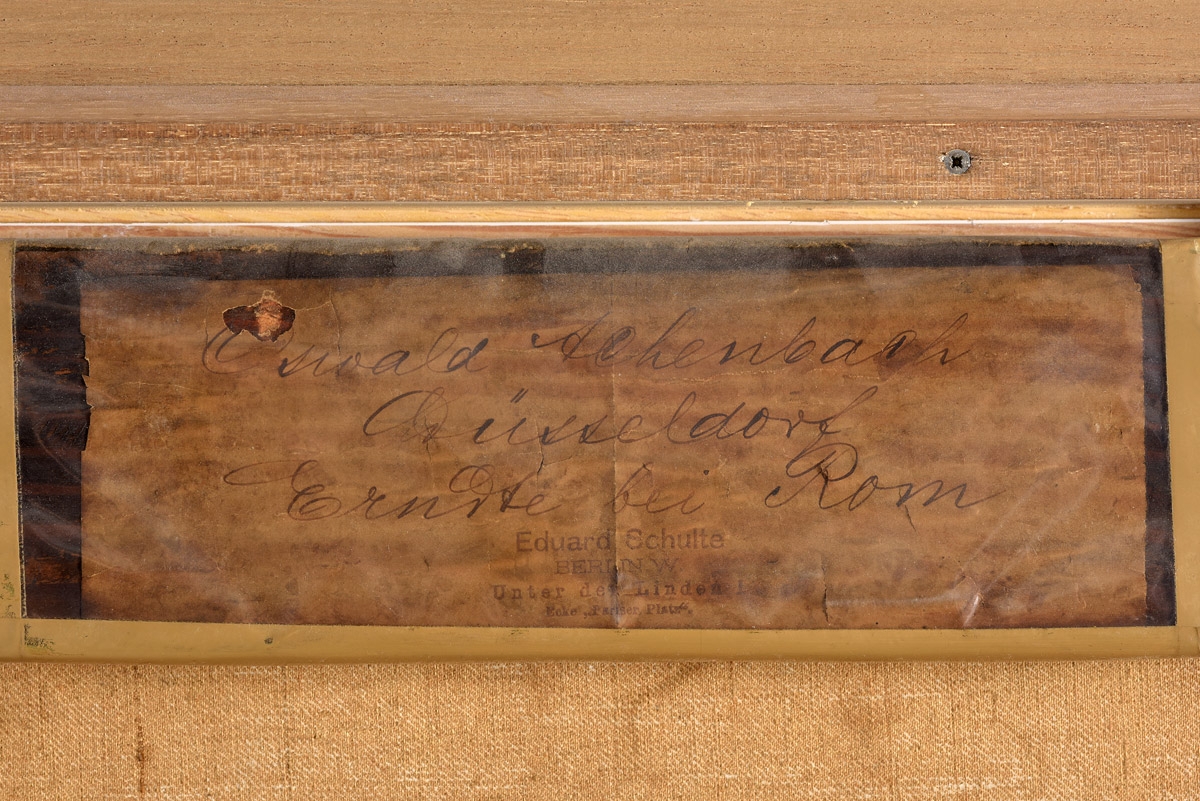 Oswald Achenbach
Düsseldorf
Erndte bei Rom
Eduard Schulte
BERLIN.W
Unter den Linden
Ecke Pariser Platz.